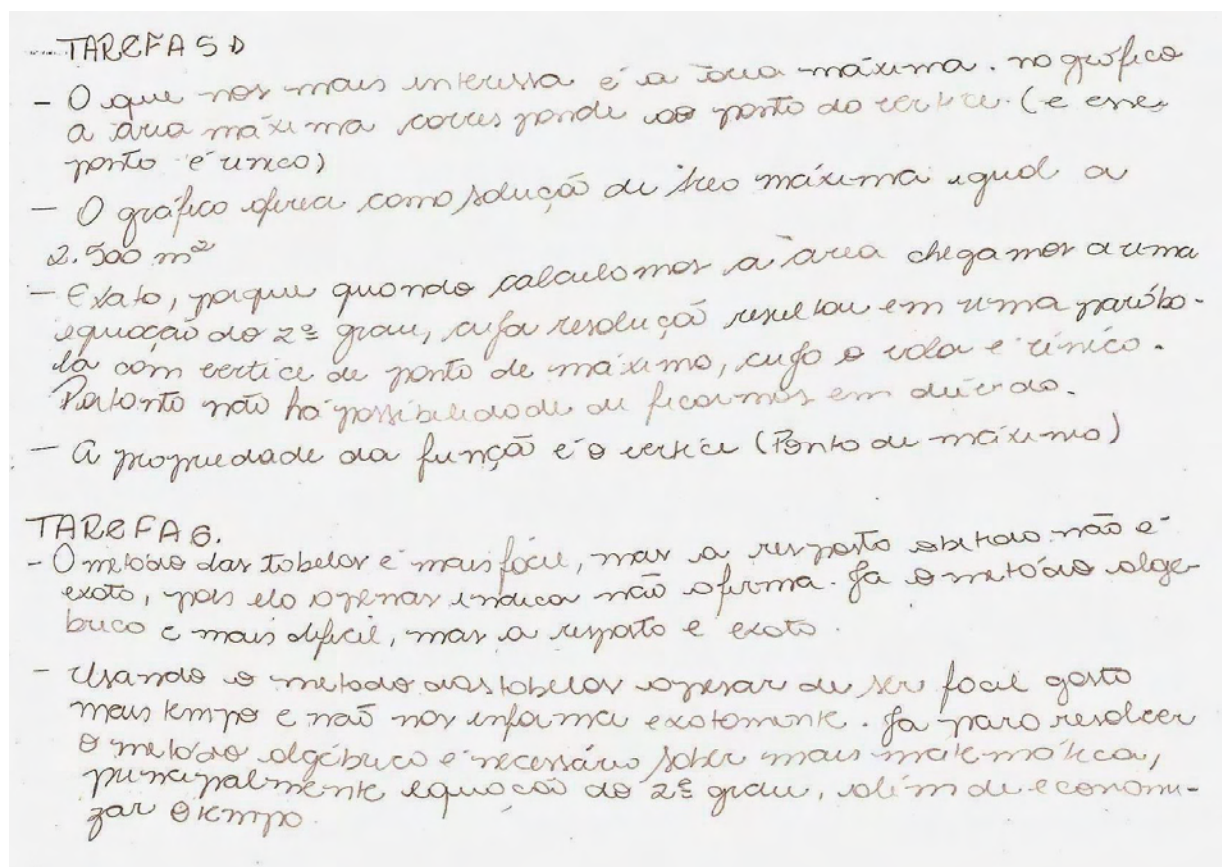 TAREFA 5 D
- O que nos mais interessa é a área máxima. no gráfico
a área máxima corresponde ao ponto do vertice. (e esse
ponto é unico)
- O gráfico oferece como solução de área máxima igual a
2.500 m²
- Exato, porque quando calculamos a área chegamos a uma
equação do 2º grau, cuja resolução resultou em uma parábo-
la com vertice de ponto de máximo, cujo o valor é único.
Portanto não há possibilidade de ficarmos em dúvida.
- A propriedade da função é o vertice (Ponto de máximo)
TAREFA 6.
- O método das tabelas é mais fácil, mas a resposta obtida não é
exata, pois ela apenas indica não afirma. Ja o método alge-
brico é mais dificil, mas a resposta e exata.
- Usando o metodo das tabelas apesar de ser facil gasta
mais tempo e não nos informa exatamente. Ja para resolver
o metodo algébrico é necessário saber mais matemática,
principalmente equação do 2º grau, além de economi-
zar o tempo.